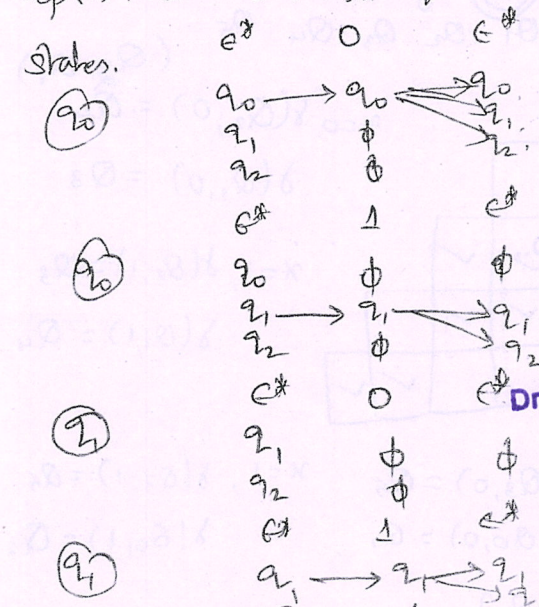 ϵ* 0 ϵ*
states.
q0 q0 → q0 → q0
q1 ϕ q1
q2 ϕ q2.
ϵ* 1 ϵ*
q0 q0 ϕ ϕ
q1 → q1 → q1
q2 ϕ q2
ϵ* 0 ϵ* Dr
q1 q1 ϕ ϕ
q2 ϕ
ϵ* 1 ϵ*
q1 q1 → q1 → q1